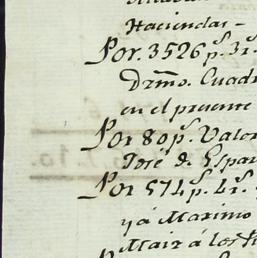 Haciendas -
Por. 3526 p.s 3 r.s
Dzmo. Cuadr
en el presente
Por 80 p.s Valor
José d. Espar
Por 574 p.s 4 r.s
y á Maximo
Maiz á los